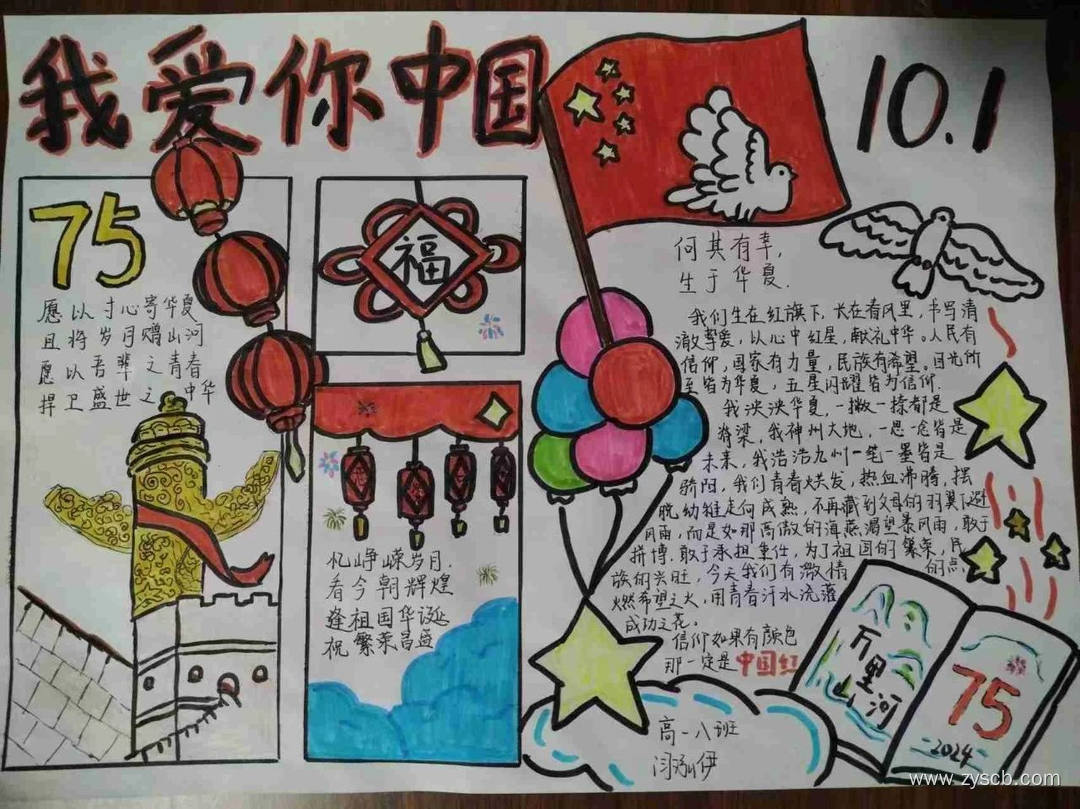 我爱你中国
10.1
75
愿以寸心寄华夏
且将岁月赠山河
愿以吾辈之青春
捍卫盛世之中华
福
忆峥嵘岁月.
看今朝辉煌
逢祖国华诞
祝繁荣昌盛
何其有幸,
生于华夏.
我们生在红旗下,长在春风里,书写清
澈挚爱,以心中红星,献礼中华。人民有
信仰,国家有力量,民族有希望。目光所
至皆为华夏,五星闪耀皆为信仰.
我泱泱华夏,一撇一捺都是
脊梁,我神州大地,一思一念皆是
未来,我浩浩九州一笔一墨皆是
骄阳,我们青春焕发,热血沸腾,摆
脱幼稚走向成熟,不再藏到父母的羽翼下避
风雨,而是如那高傲的海燕渴望暴风雨,敢于
拼搏.敢于承担重任,为了祖国的繁荣,民
族的兴旺,今天我们有激情的点
燃希望之火,用青春汗水浇灌
成功之花。
信仰如果有颜色
那一定是中国红
高一八班
伊
万里
山河
75
2024
www.zyscb.com